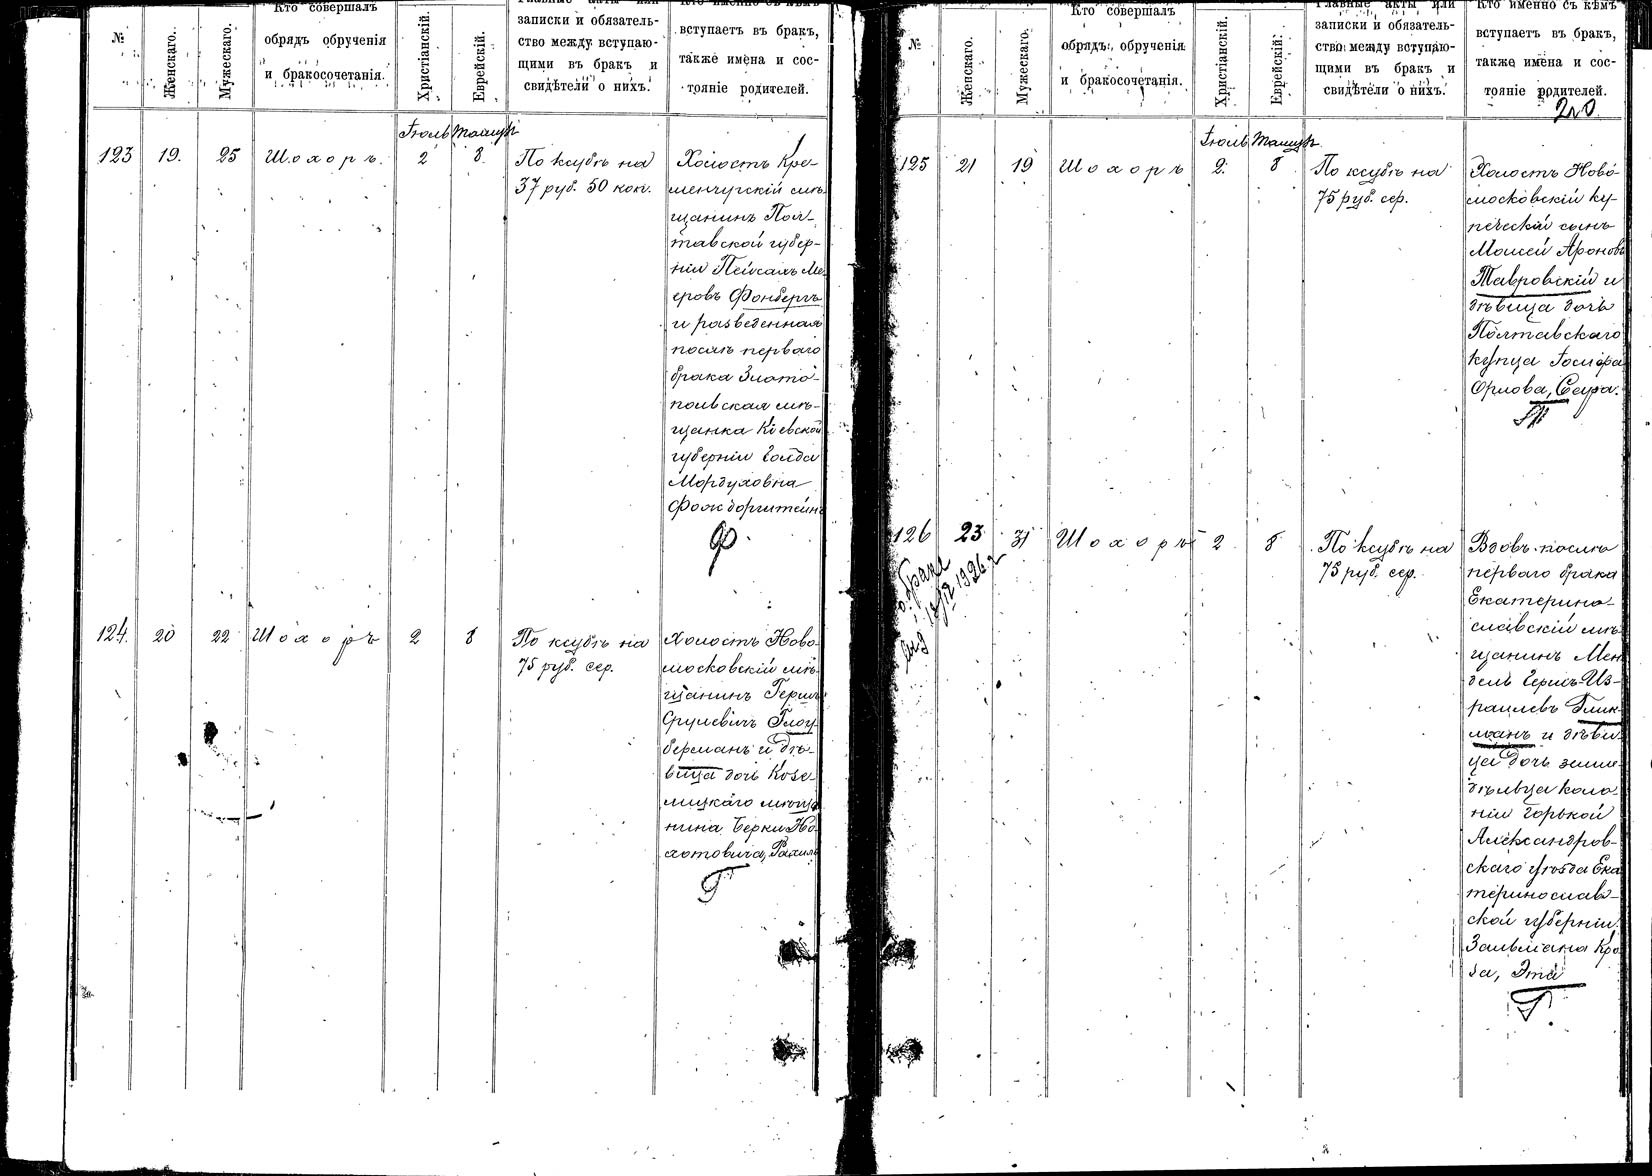 №
Женскаго.
Мужескаго.
Кто совершалъ
обрядъ обрученія
и бракосочетанія.
Христіанскій.
Еврейскій.
Главные акты или
записки и обязатель-
ство между вступаю-
щими въ бракъ и
свидѣтели о нихъ.
Кто именно съ кѣмъ
вступаетъ въ бракъ,
также имена и сос-
тояніе родителей.
Іюль Тамузъ
123 19. 25 Шохоръ. 2 8.
По ксубѣ на
37 руб. 50 коп.
Холостъ Кре-
менчугскій мѣ-
щанинъ Пол-
тавской губер-
ніи Пейсахъ Ме-
еровъ Фонбергъ
и разведенная
послѣ перваго
брака Злато-
польская мѣ-
щанка Кіевской
губерніи Голда
Мордуховна
Ф.
124. 20 22 Шохоръ 2 8
По ксубѣ на
75 руб. сер.
Холостъ Ново-
московскій мѣ-
щанинъ Гершъ
Сруліевичъ Глоу-
берманъ и дѣ-
вица дочь Кобе-
ляцкаго мѣща-
нина Берки
Рахиль
Г
№
Женскаго.
Мужескаго.
Кто совершалъ
обрядъ обрученія
и бракосочетанія.
Христіанскій.
Еврейскій.
Главные акты или
записки и обязатель-
ство между вступаю-
щими въ бракъ и
свидѣтели о нихъ.
Кто именно съ кѣмъ
вступаетъ въ бракъ,
также имена и сос-
тояніе родителей.
20
Іюль Тамузъ
125 21 19 Шохоръ 2. 8
По ксубѣ на
75 руб. сер.
Холостъ Ново-
московскій ку-
печескій сынъ
Моисей Ароновъ
Тавровскій и
дѣвица дочь
Полтавскаго
купца Іосифа
Орлова, Сара.
Т
126 23 31 Шохоръ 2 8
По ксубѣ на
75 руб. сер.
Вдовъ послѣ
перваго брака
Екатерино-
славскій мѣ-
щанинъ Мен-
дель Гершъ Из-
раилевъ Глик-
манъ и дѣви-
ца дочь земле-
дѣльца коло-
ніи Горькой
Александров-
скаго уѣзда Ека-
теринослав-
ской губерніи
Зальмана Кро-
за, Эта
Г.
о браке
1926 г